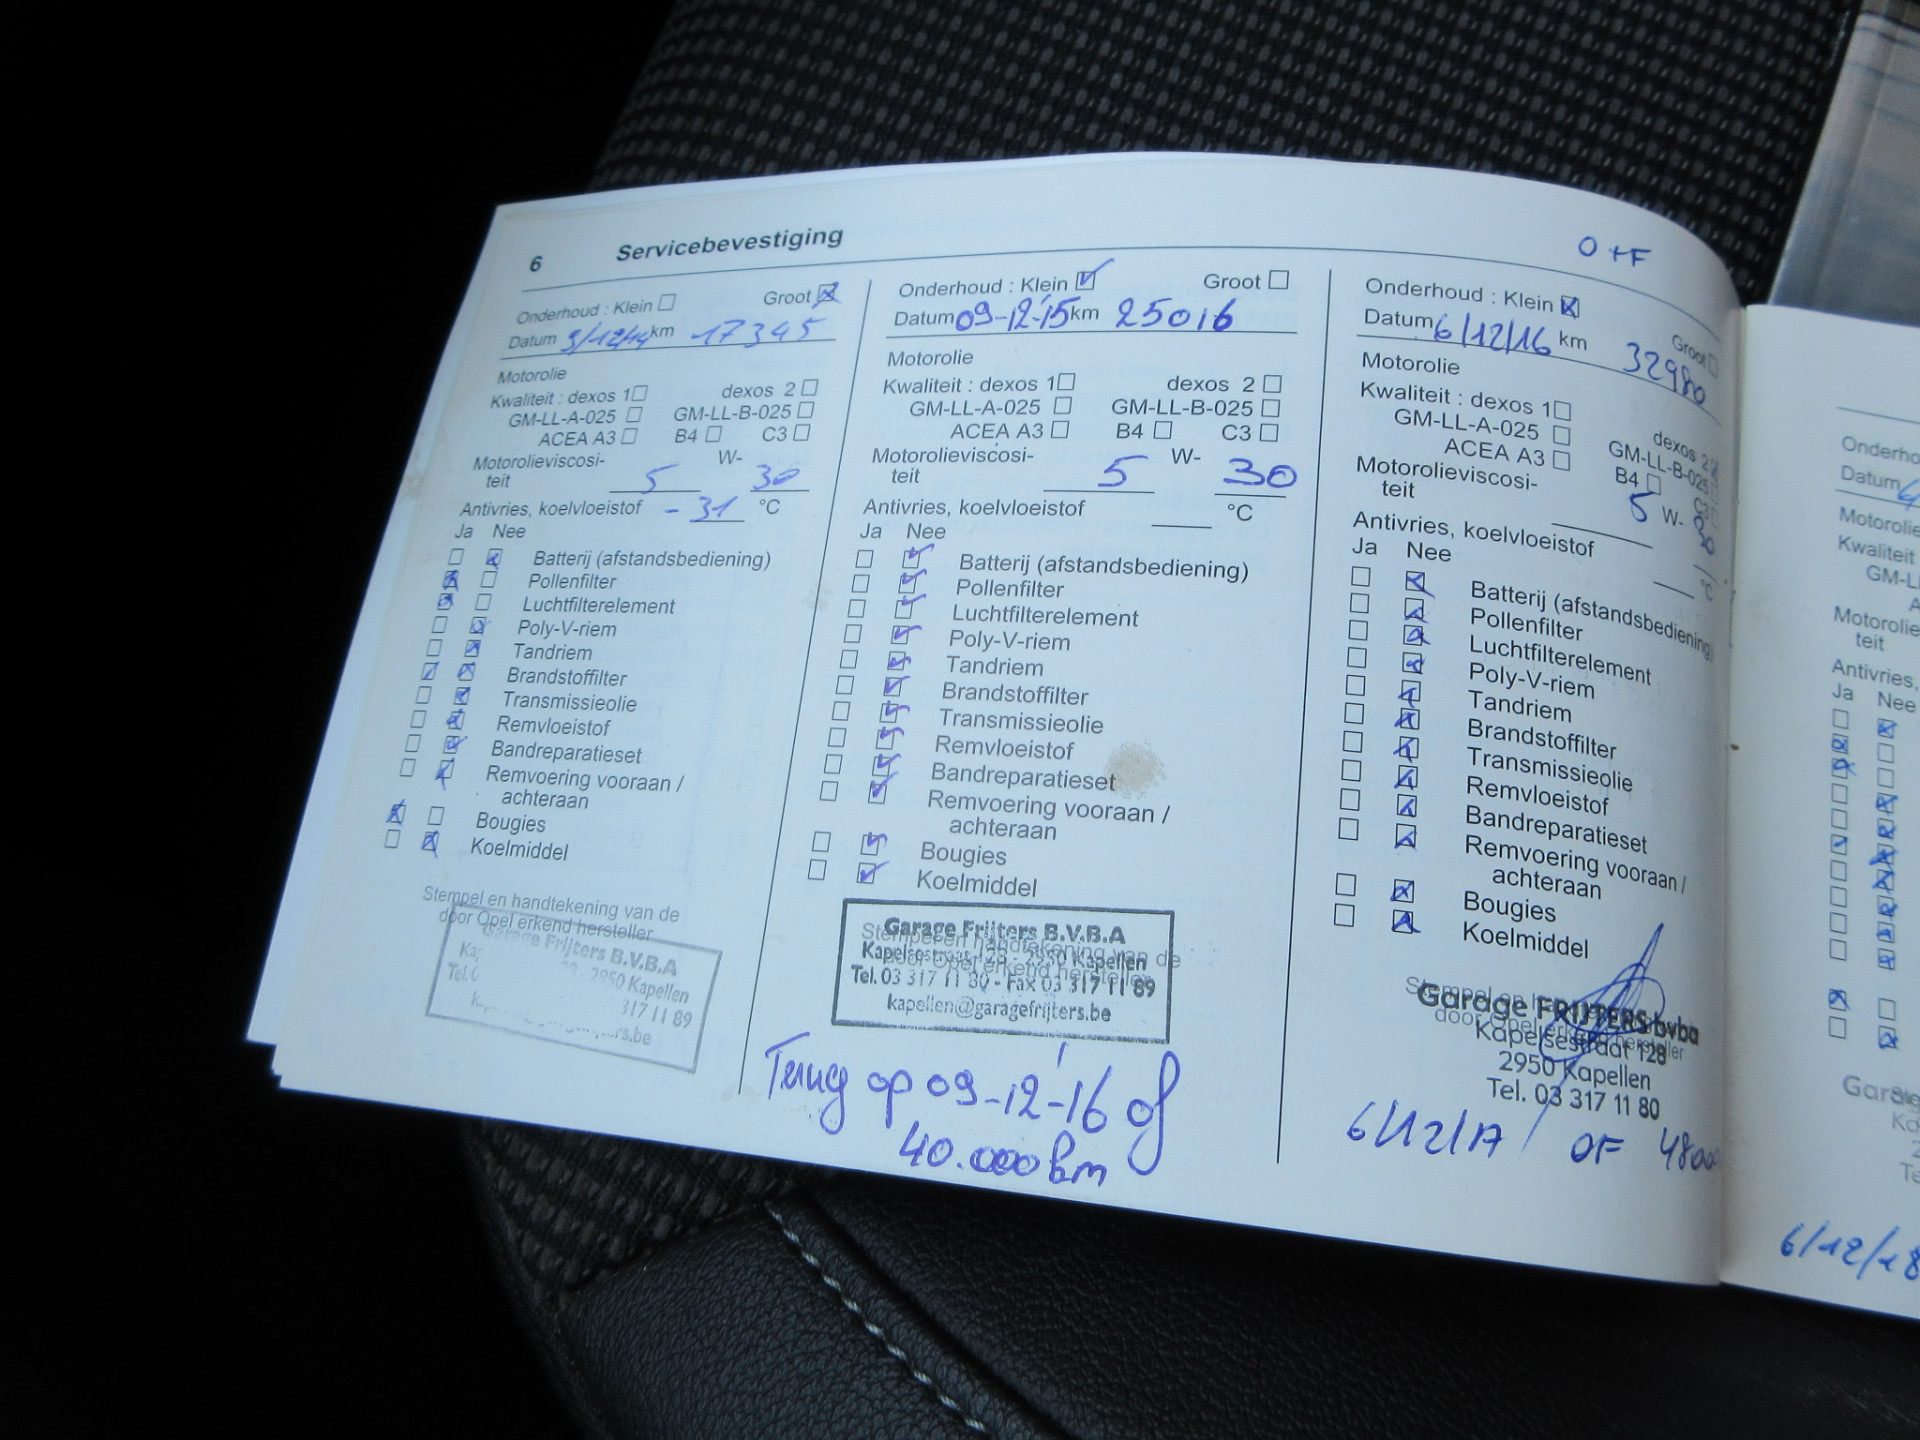 6 Servicebevestiging
Onderhoud : Klein Groot
Datum 3/12/14 km 17345
Motorolie
Kwaliteit : dexos 1 dexos 2
GM-LL-A-025 GM-LL-B-025
ACEA A3 B4 C3
Motorolieviscosi-
teit 5 W- 30
Antivries, koelvloeistof - 31 °C
Ja Nee
Batterij (afstandsbediening)
Pollenfilter
Luchtfilterelement
Poly-V-riem
Tandriem
Brandstoffilter
Transmissieolie
Remvloeistof
Bandreparatieset
Remvoering vooraan /
achteraan
Bougies
Koelmiddel
Stempel en handtekening van de
door Opel erkend hersteller
Garage Frijters B.V.B.A
2950 Kapellen
317 11 89
Onderhoud : Klein Groot
Datum 09-12-'15 km 25016
Motorolie
Kwaliteit : dexos 1 dexos 2
GM-LL-A-025 GM-LL-B-025
ACEA A3 B4 C3
Motorolieviscosi-
teit 5 W- 30
Antivries, koelvloeistof °C
Ja Nee
Batterij (afstandsbediening)
Pollenfilter
Luchtfilterelement
Poly-V-riem
Tandriem
Brandstoffilter
Transmissieolie
Remvloeistof
Bandreparatieset
Remvoering vooraan /
achteraan
Bougies
Koelmiddel
Stempel en handtekening van de
door Opel erkend hersteller
Garage Frijters B.V.B.A
Kapelsestraat 128 - 2950 Kapellen
Tel. 03 317 11 80 - Fax 03 317 11 89
kapellen@garagefrijters.be
Terug op 09-12-'16 of
40.000 km
O + F
Onderhoud : Klein Groot
Datum 6/12/16 km 32980
Motorolie
Kwaliteit : dexos 1 dexos 2
GM-LL-A-025 GM-LL-B-025
ACEA A3 B4 C3
Motorolieviscosi-
teit 5 W- 30
Antivries, koelvloeistof °C
Ja Nee
Batterij (afstandsbediening)
Pollenfilter
Luchtfilterelement
Poly-V-riem
Tandriem
Brandstoffilter
Transmissieolie
Remvloeistof
Bandreparatieset
Remvoering vooraan /
achteraan
Bougies
Koelmiddel
Stempel en
door Opel erkend hersteller
Garage FRIJTERS bvba
Kapelsestraat 128
2950 Kapellen
Tel. 03 317 11 80
6/12/17 / OF 48000
Onderho
Datum
Motorolie
Kwaliteit
GM-L
Motorolie
teit
Antivries,
Ja Nee
6/12/18